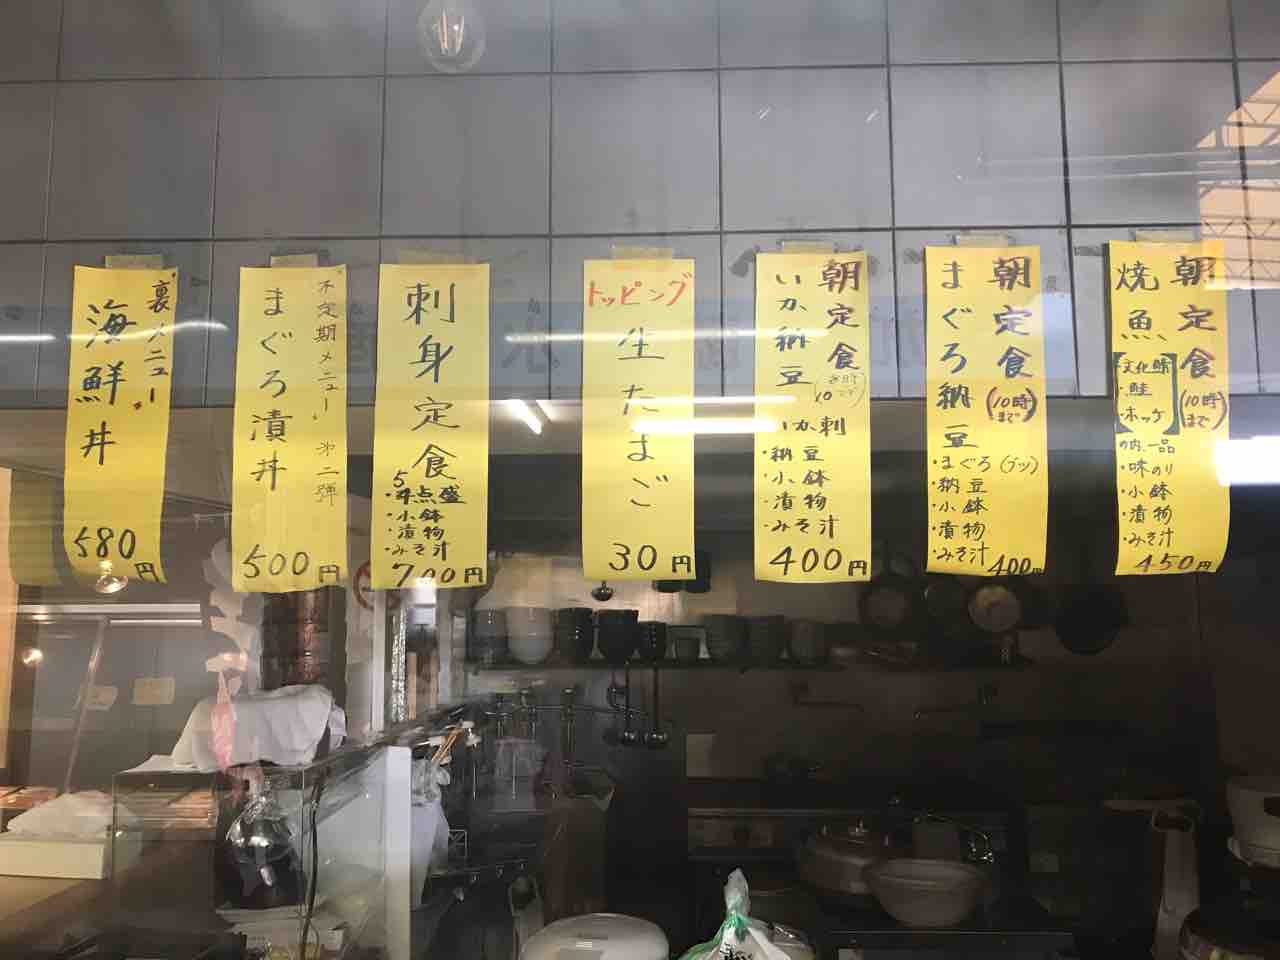 朝定食
(10時まで)
焼魚
文化鯖
・鮭
・ホッケ
の内、一品
・味のり
・小鉢
・漬物
・みそ汁
450円
朝定食
(10時まで)
まぐろ納豆
・まぐろ(ブツ)
・納豆
・小鉢
・漬物
・みそ汁
400円
朝定食
いか納豆
いか刺
・納豆
・小鉢
・漬物
・みそ汁
400円
トッピング
生たまご
30円
刺身定食
・5点盛
・小鉢
・漬物
・みそ汁
700円
"不定期メニュー" 第二弾
まぐろ漬丼
500円
"裏メニュー"
海鮮丼
580円